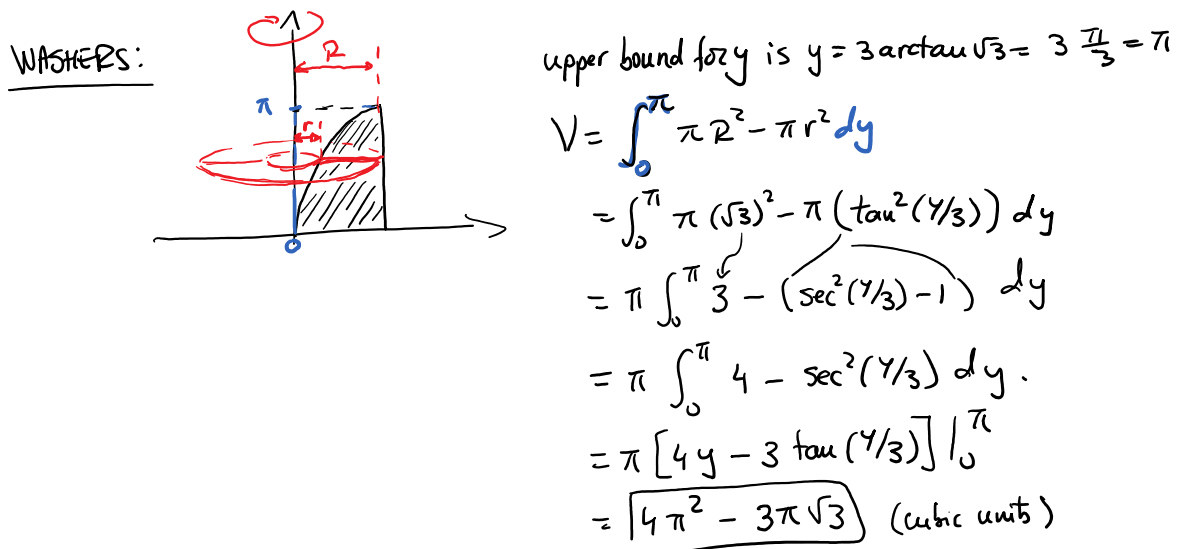 WASHERS:
R
π
r
0
upper bound for y is y = 3 arctan √3 = 3 π/3 = π
V = ∫₀^π πR² − πr² dy
= ∫₀^π π(√3)² − π(tan²(y/3)) dy
= π ∫₀^π 3 − (sec²(y/3) − 1) dy
= π ∫₀^π 4 − sec²(y/3) dy.
= π [4y − 3 tan(y/3)] |₀^π
= 4π² − 3π√3 (cubic units)